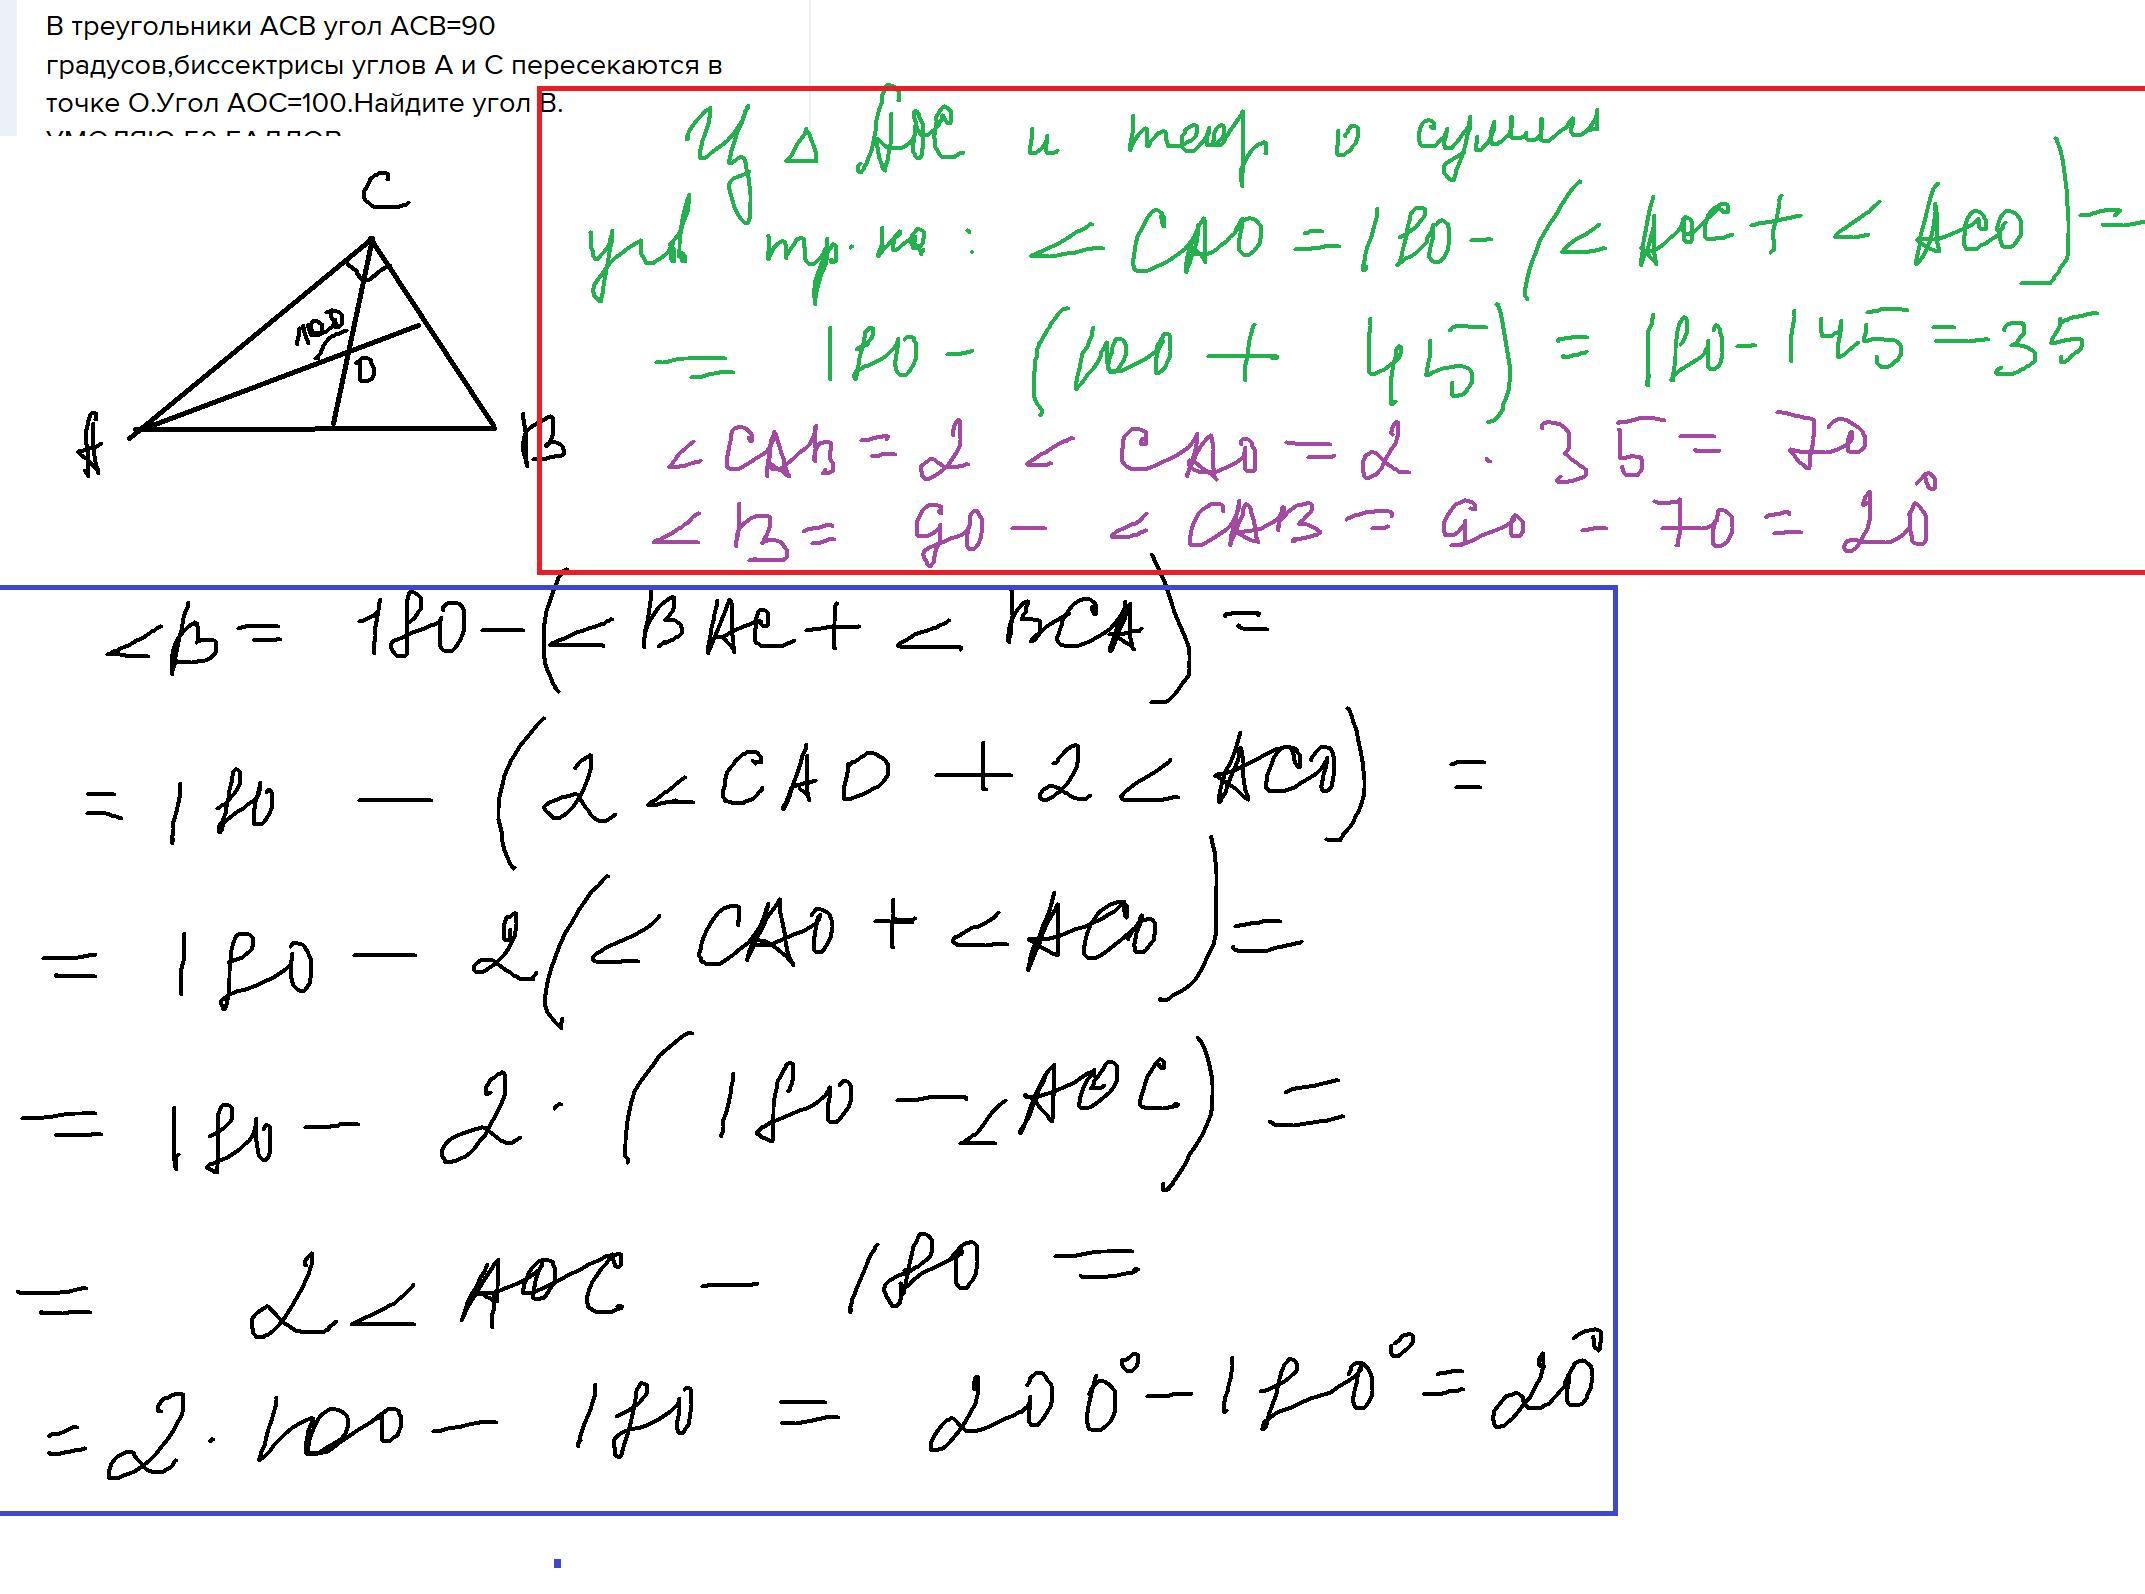 В треугольники АСВ угол АСВ=90
градусов,биссектрисы углов А и С пересекаются в
точке О.Угол АОС=100.Найдите угол В.
УМОЛЯЮ 50 БАЛЛОВ
C
100
O
A
B
Из Δ AOC и теор о сумме
угл тр-ка: < CAO = 180 - (< AOC + < ACO) =
= 180 - (100 + 45) = 180 - 145 = 35
< CAB = 2 < CAO = 2 · 35 = 70
< B = 90 - < CAB = 90 - 70 = 20°
< B = 180 - (< BAC + < BCA) =
= 180 - (2 < CAO + 2 < ACO) =
= 180 - 2(< CAO + < ACO) =
= 180 - 2 · (180 - < AOC) =
= 2 < AOC - 180 =
= 2 · 100 - 180 = 200° - 180° = 20°